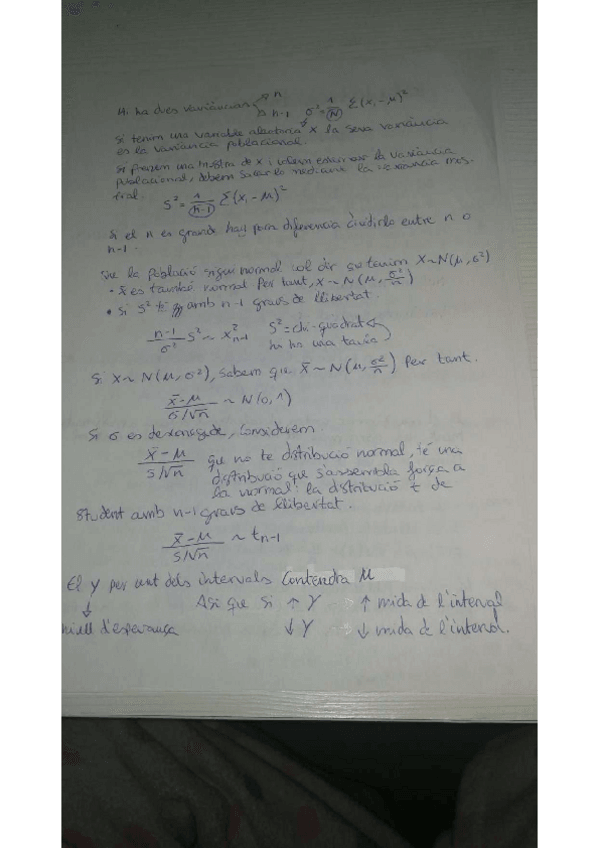 Hi ha dues variàncies → n
→ n-1 σ² = 1/N Σ(xᵢ - μ)²
Si tenim una variable aleatoria X la seva variància
es la variància poblacional.
Si prenem una mostra de x i volem la variància
poblacional, debem mediante la variancia mos-
tral. S² = 1/(n-1) Σ(xᵢ - μ)²
Si el n es grande hay poca diferencia dividirlo entre n o
n-1.
Que la població sigui normal vol dir que tenim X~N(μ, σ²)
• x̄ es també normal Per tant, x ~ N(μ, σ²/n)
• Si S² amb n-1 graus de llibertat.
n-1/σ² S² ~ X²ₙ₋₁ S² = chi-quadrat
hi ha una taula
Si X ~ N(μ, σ²), sabem que x̄ ~ N(μ, σ²/n) Per tant.
x̄-μ / σ/√n ~ N(0,1)
Si σ es desconeguda, considerem
x̄ - μ / S/√n que no te distribució normal, té una
distribució que s'assembla força a
la normal: la distribució t de
Student amb n-1 graus de llibertat.
x̄ - μ / S/√n ~ tₙ₋₁
El γ per cent dels intervals Contendra μ
↓ Asi que si ↑ γ ↑ mida de l'interval
nivell d'esperança ↓ γ ↓ mida de l'interval.